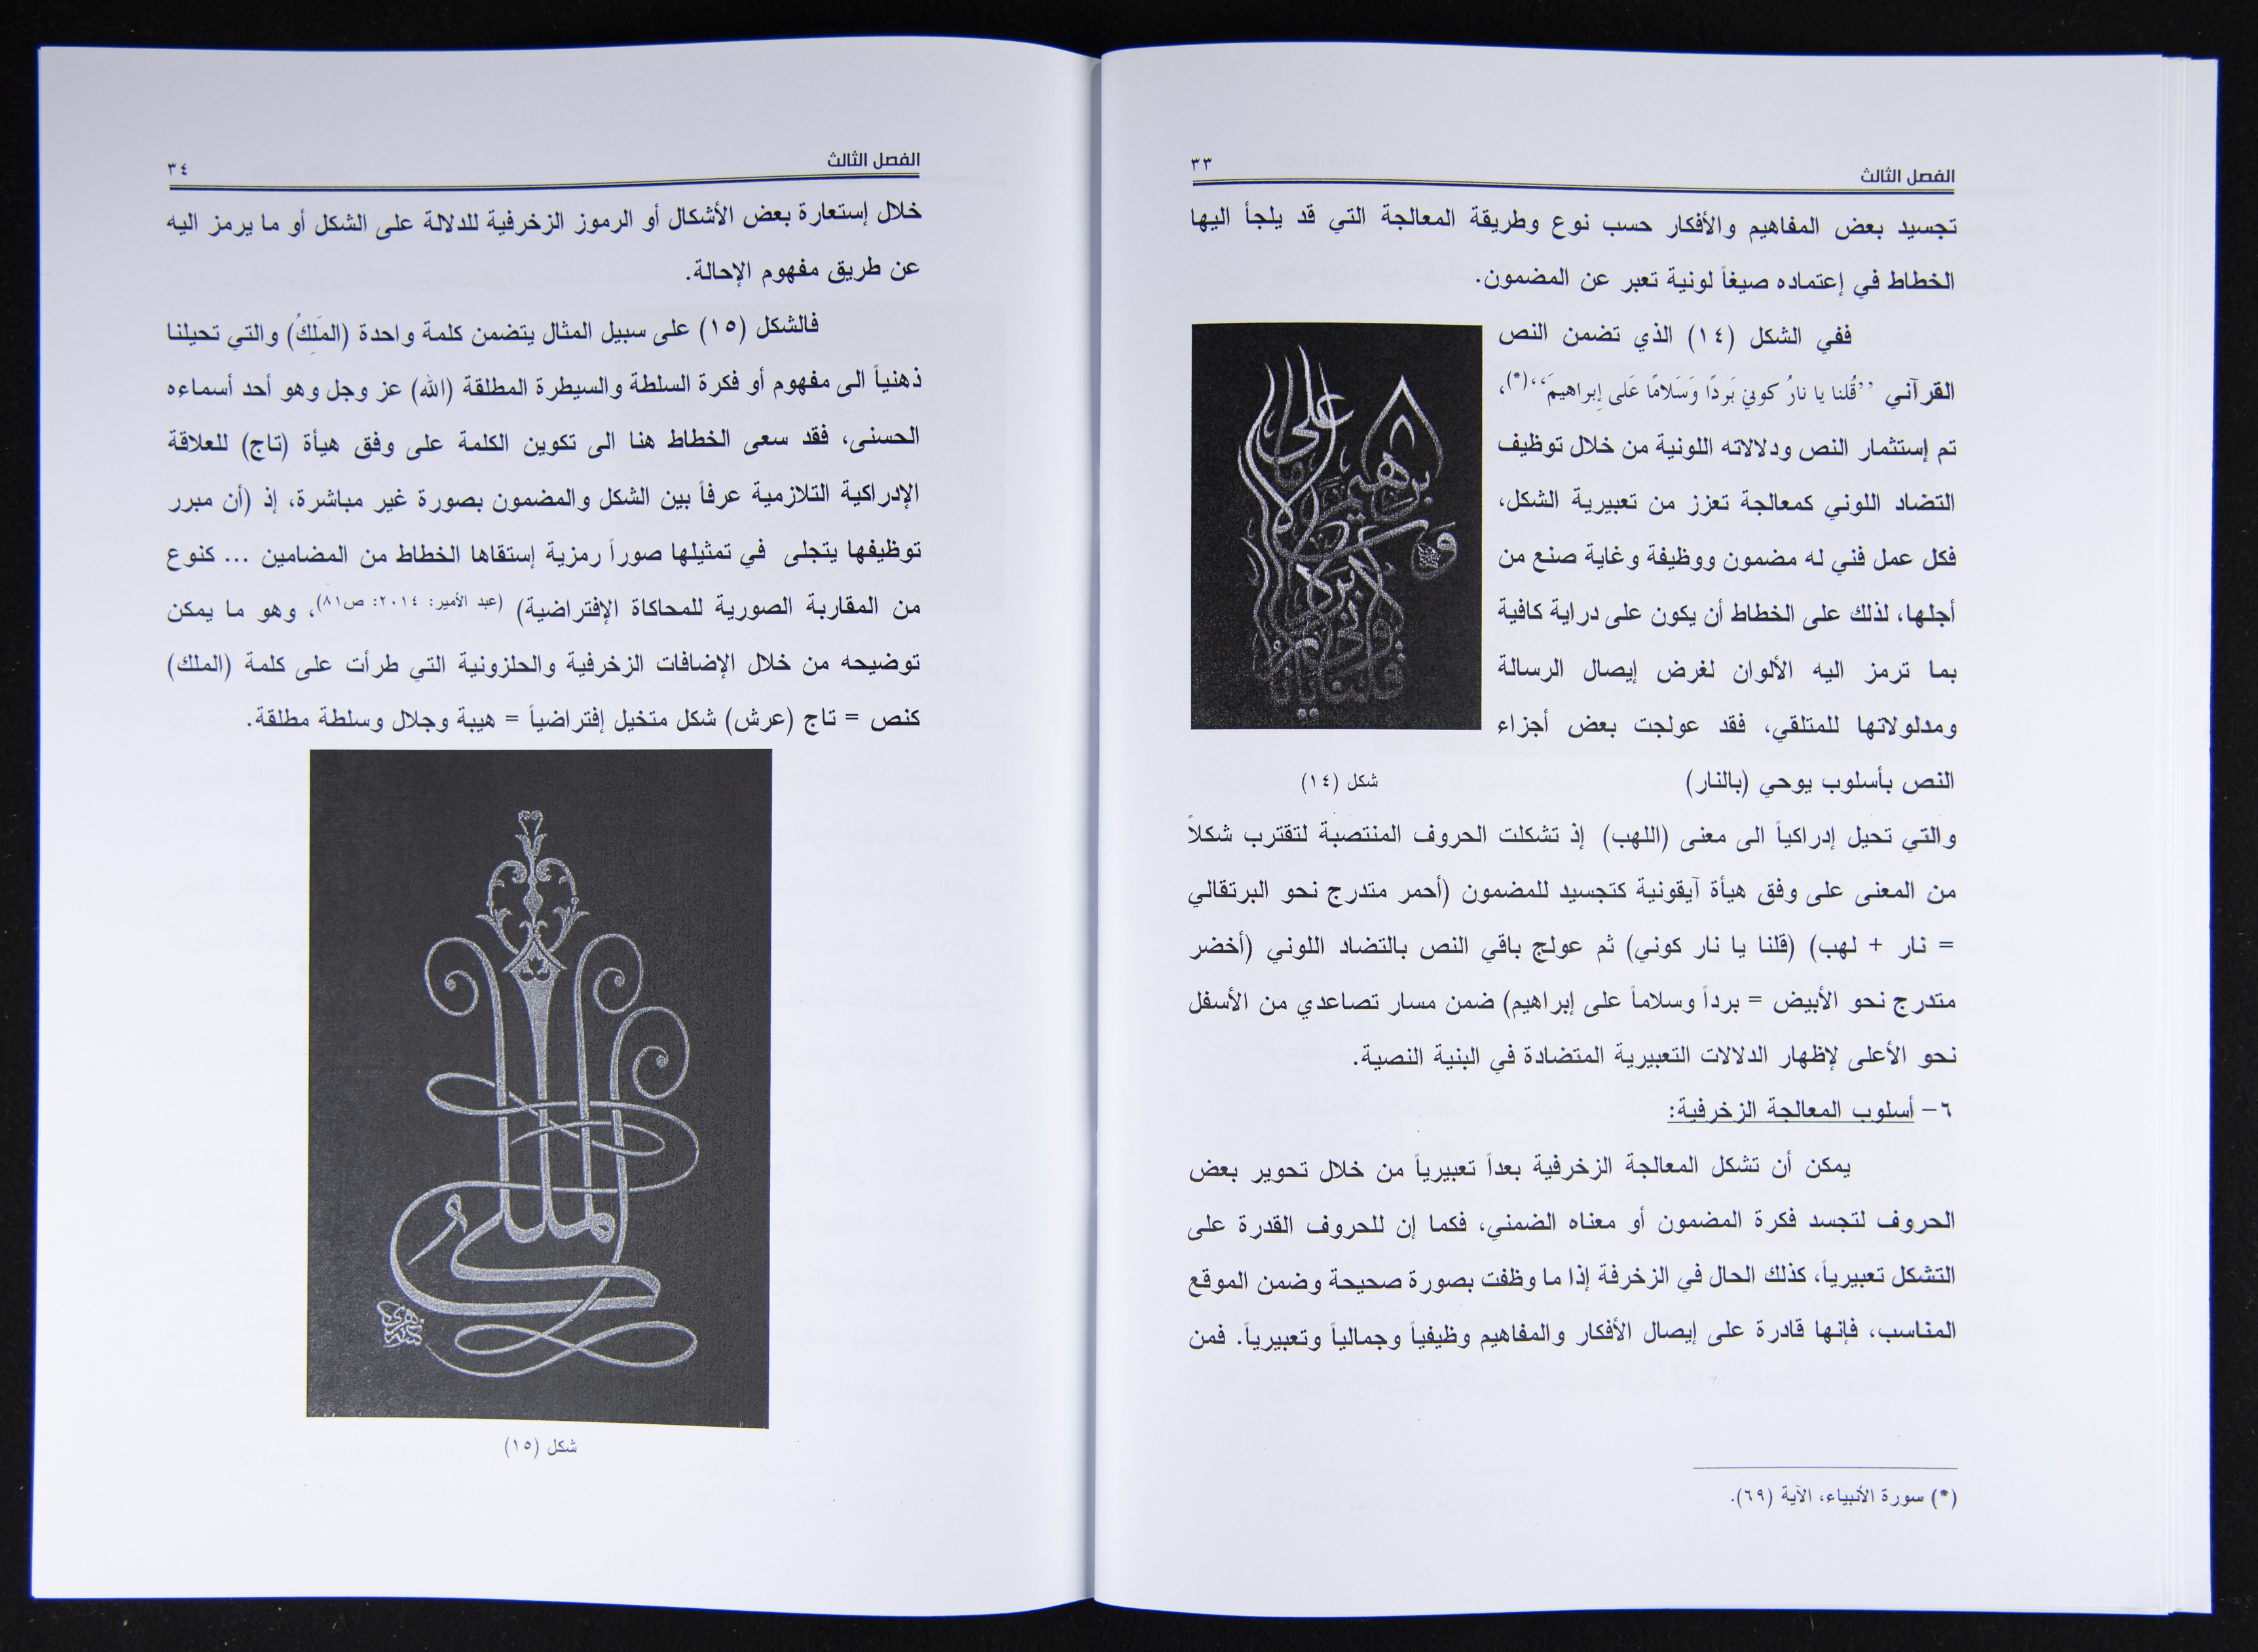 الفصل الثالث
٣٣
تجسيد بعض المفاهيم والأفكار حسب نوع وطريقة المعالجة التي قد يلجأ اليها
الخطاط في إعتماده صيغاً لونية تعبر عن المضمون.
ففي الشكل (١٤) الذي تضمن النص
القرآني ”قُلنا يا نارُ كوني بَردًا وَسَلامًا عَلى إِبراهيمَ“(*)،
تم إستثمار النص ودلالاته اللونية من خلال توظيف
التضاد اللوني كمعالجة تعزز من تعبيرية الشكل،
فكل عمل فني له مضمون ووظيفة وغاية صنع من
أجلها، لذلك على الخطاط أن يكون على دراية كافية
بما ترمز اليه الألوان لغرض إيصال الرسالة
ومدلولاتها للمتلقي، فقد عولجت بعض أجزاء
النص بأسلوب يوحي (بالنار)
شكل (١٤)
والتي تحيل إدراكياً الى معنى (اللهب) إذ تشكلت الحروف المنتصبة لتقترب شكلاً
من المعنى على وفق هيأة آيقونية كتجسيد للمضمون (أحمر متدرج نحو البرتقالي
= نار + لهب) (قلنا يا نار كوني) ثم عولج باقي النص بالتضاد اللوني (أخضر
متدرج نحو الأبيض = برداً وسلاماً على إبراهيم) ضمن مسار تصاعدي من الأسفل
نحو الأعلى لإظهار الدلالات التعبيرية المتضادة في البنية النصية.
٦- أسلوب المعالجة الزخرفية:
يمكن أن تشكل المعالجة الزخرفية بعداً تعبيرياً من خلال تحوير بعض
الحروف لتجسد فكرة المضمون أو معناه الضمني، فكما إن للحروف القدرة على
التشكل تعبيرياً، كذلك الحال في الزخرفة إذا ما وظفت بصورة صحيحة وضمن الموقع
المناسب، فإنها قادرة على إيصال الأفكار والمفاهيم وظيفياً وجمالياً وتعبيرياً. فمن
(*) سورة الأنبياء، الآية (٦٩).
الفصل الثالث
٣٤
خلال إستعارة بعض الأشكال أو الرموز الزخرفية للدلالة على الشكل أو ما يرمز اليه
عن طريق مفهوم الإحالة.
فالشكل (١٥) على سبيل المثال يتضمن كلمة واحدة (المَلِكُ) والتي تحيلنا
ذهنياً الى مفهوم أو فكرة السلطة والسيطرة المطلقة (الله) عز وجل وهو أحد أسماءه
الحسنى، فقد سعى الخطاط هنا الى تكوين الكلمة على وفق هيأة (تاج) للعلاقة
الإدراكية التلازمية عرفاً بين الشكل والمضمون بصورة غير مباشرة، إذ (أن مبرر
توظيفها يتجلى في تمثيلها صوراً رمزية إستقاها الخطاط من المضامين ... كنوع
من المقاربة الصورية للمحاكاة الإفتراضية) (عبد الأمير: ٢٠١٤: ص٨١)، وهو ما يمكن
توضيحه من خلال الإضافات الزخرفية والحلزونية التي طرأت على كلمة (الملك)
كنص = تاج (عرش) شكل متخيل إفتراضياً = هيبة وجلال وسلطة مطلقة.
الملك
شكل (١٥)